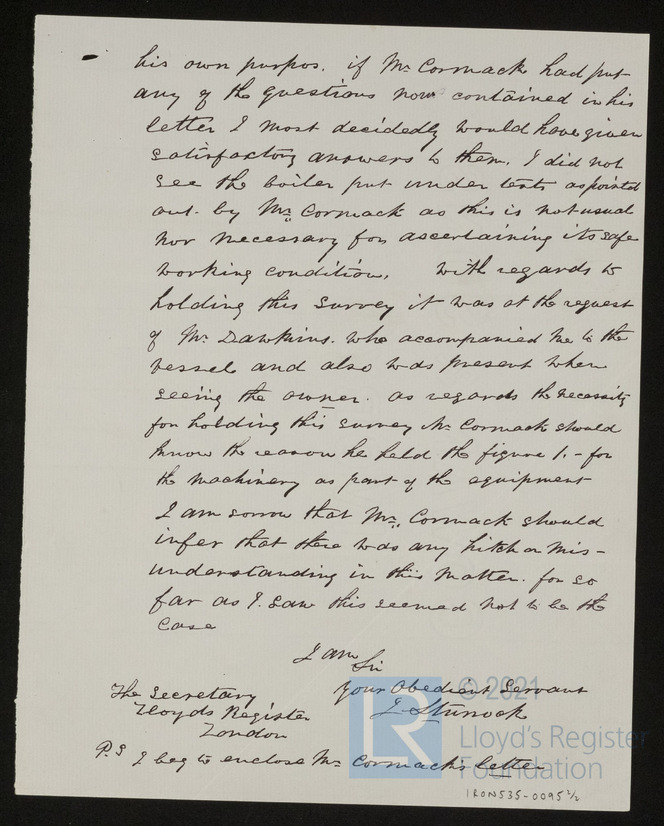 his own purpos. if Mr Cormack had put
any of the questions now contained in his
letter I most decidedly would have given
satisfactory answers to them. I did not
see the boiler put under tests as pointed
out by Mr Cormack as this is not usual
nor necessary for ascertaining its safe
working condition. with regards to
holding this survey it was at the request
of Mr Dawkins. who accompanied me to the
vessel and also was present when
seeing the owner. as regards the necessity
for holding this survey Mr Cormack should
know the reason he held the figure 1. - for
the machinery as part of the equipment
I am sorrow that Mr Cormack should
infer that there was any hitch or mis-
understanding in this matter. for so
far as I saw this seemed not to be the
case
I am Sir
Your Obedient Servant
J. Sturrock
The Secretary
Lloyds Register
London
P.S I beg to enclose Mr Cormack's letter
© 2021
LR
Lloyd's Register
Foundation
IRON535-0095 2/2